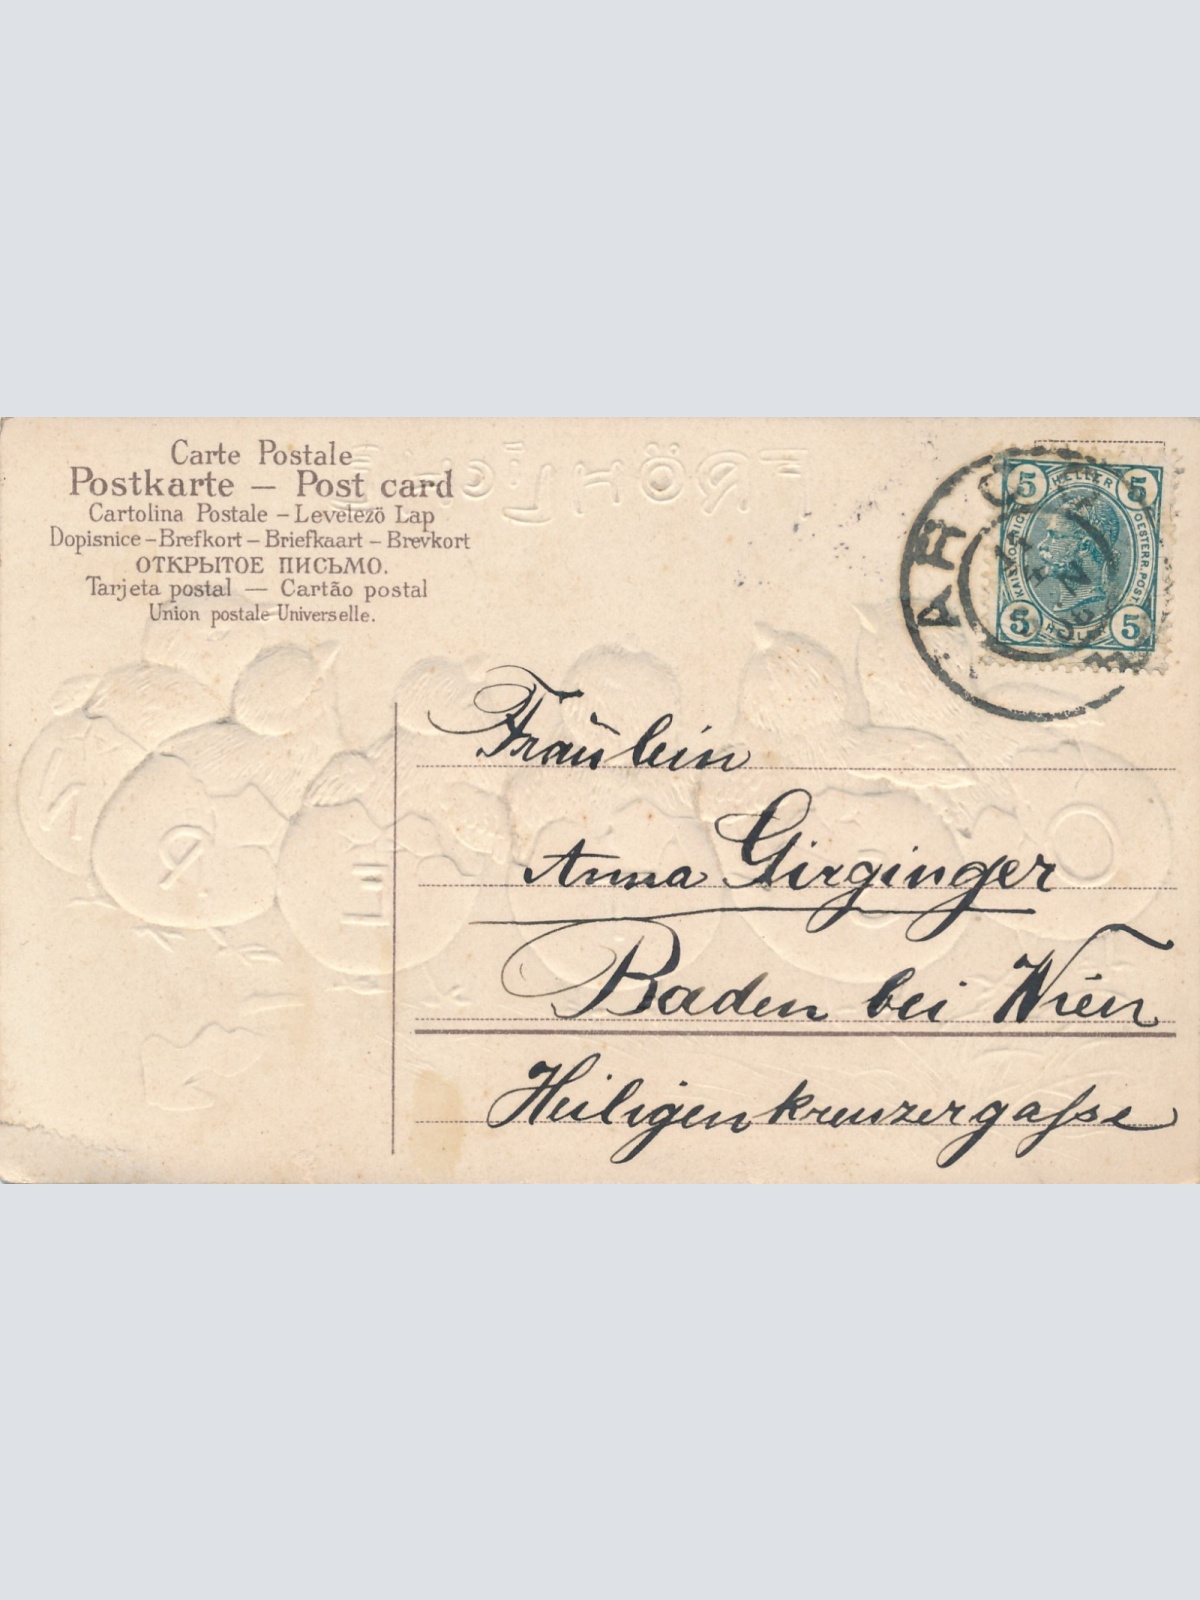 Carte Postale
Postkarte — Post card
Cartolina Postale – Levelezö Lap
Dopisnice – Brefkort – Briefkaart – Brevkort
ОТКРЫТОЕ ПИСЬМО.
Tarjeta postal — Cartão postal
Union postale Universelle.
FRÖHLICHE
5 HELLER 5
OESTERR. POST.
5 5
Fräulein
Anna Girginger
Baden bei Wien
Heiligenkreuzergaſse